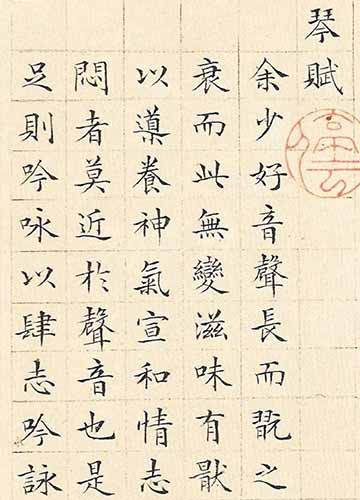 琴賦
余少好音聲長而翫之
衰而此無變滋味有猒
以導養神氣宣和情志
悶者莫近於聲音也是
足則吟咏以肆志吟詠